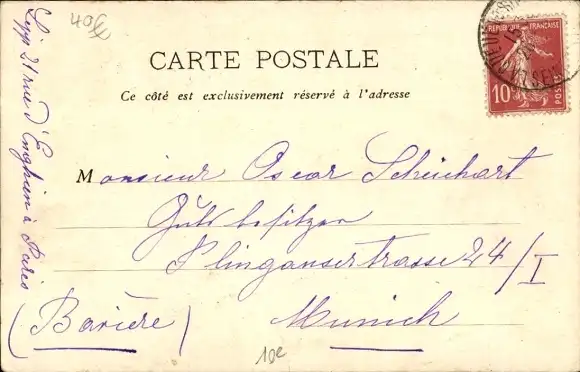 40€
CARTE POSTALE
Ce côté est exclusivement réservé à l'adresse
REPUBLIQUE FRANÇAISE
10
POSTES
Monsieur Oscar Scheichart
Gutsbesitzer
Plinganserstrasse 24/I
(Bavière) Munich
21 rue d'Enghien à Paris
10e